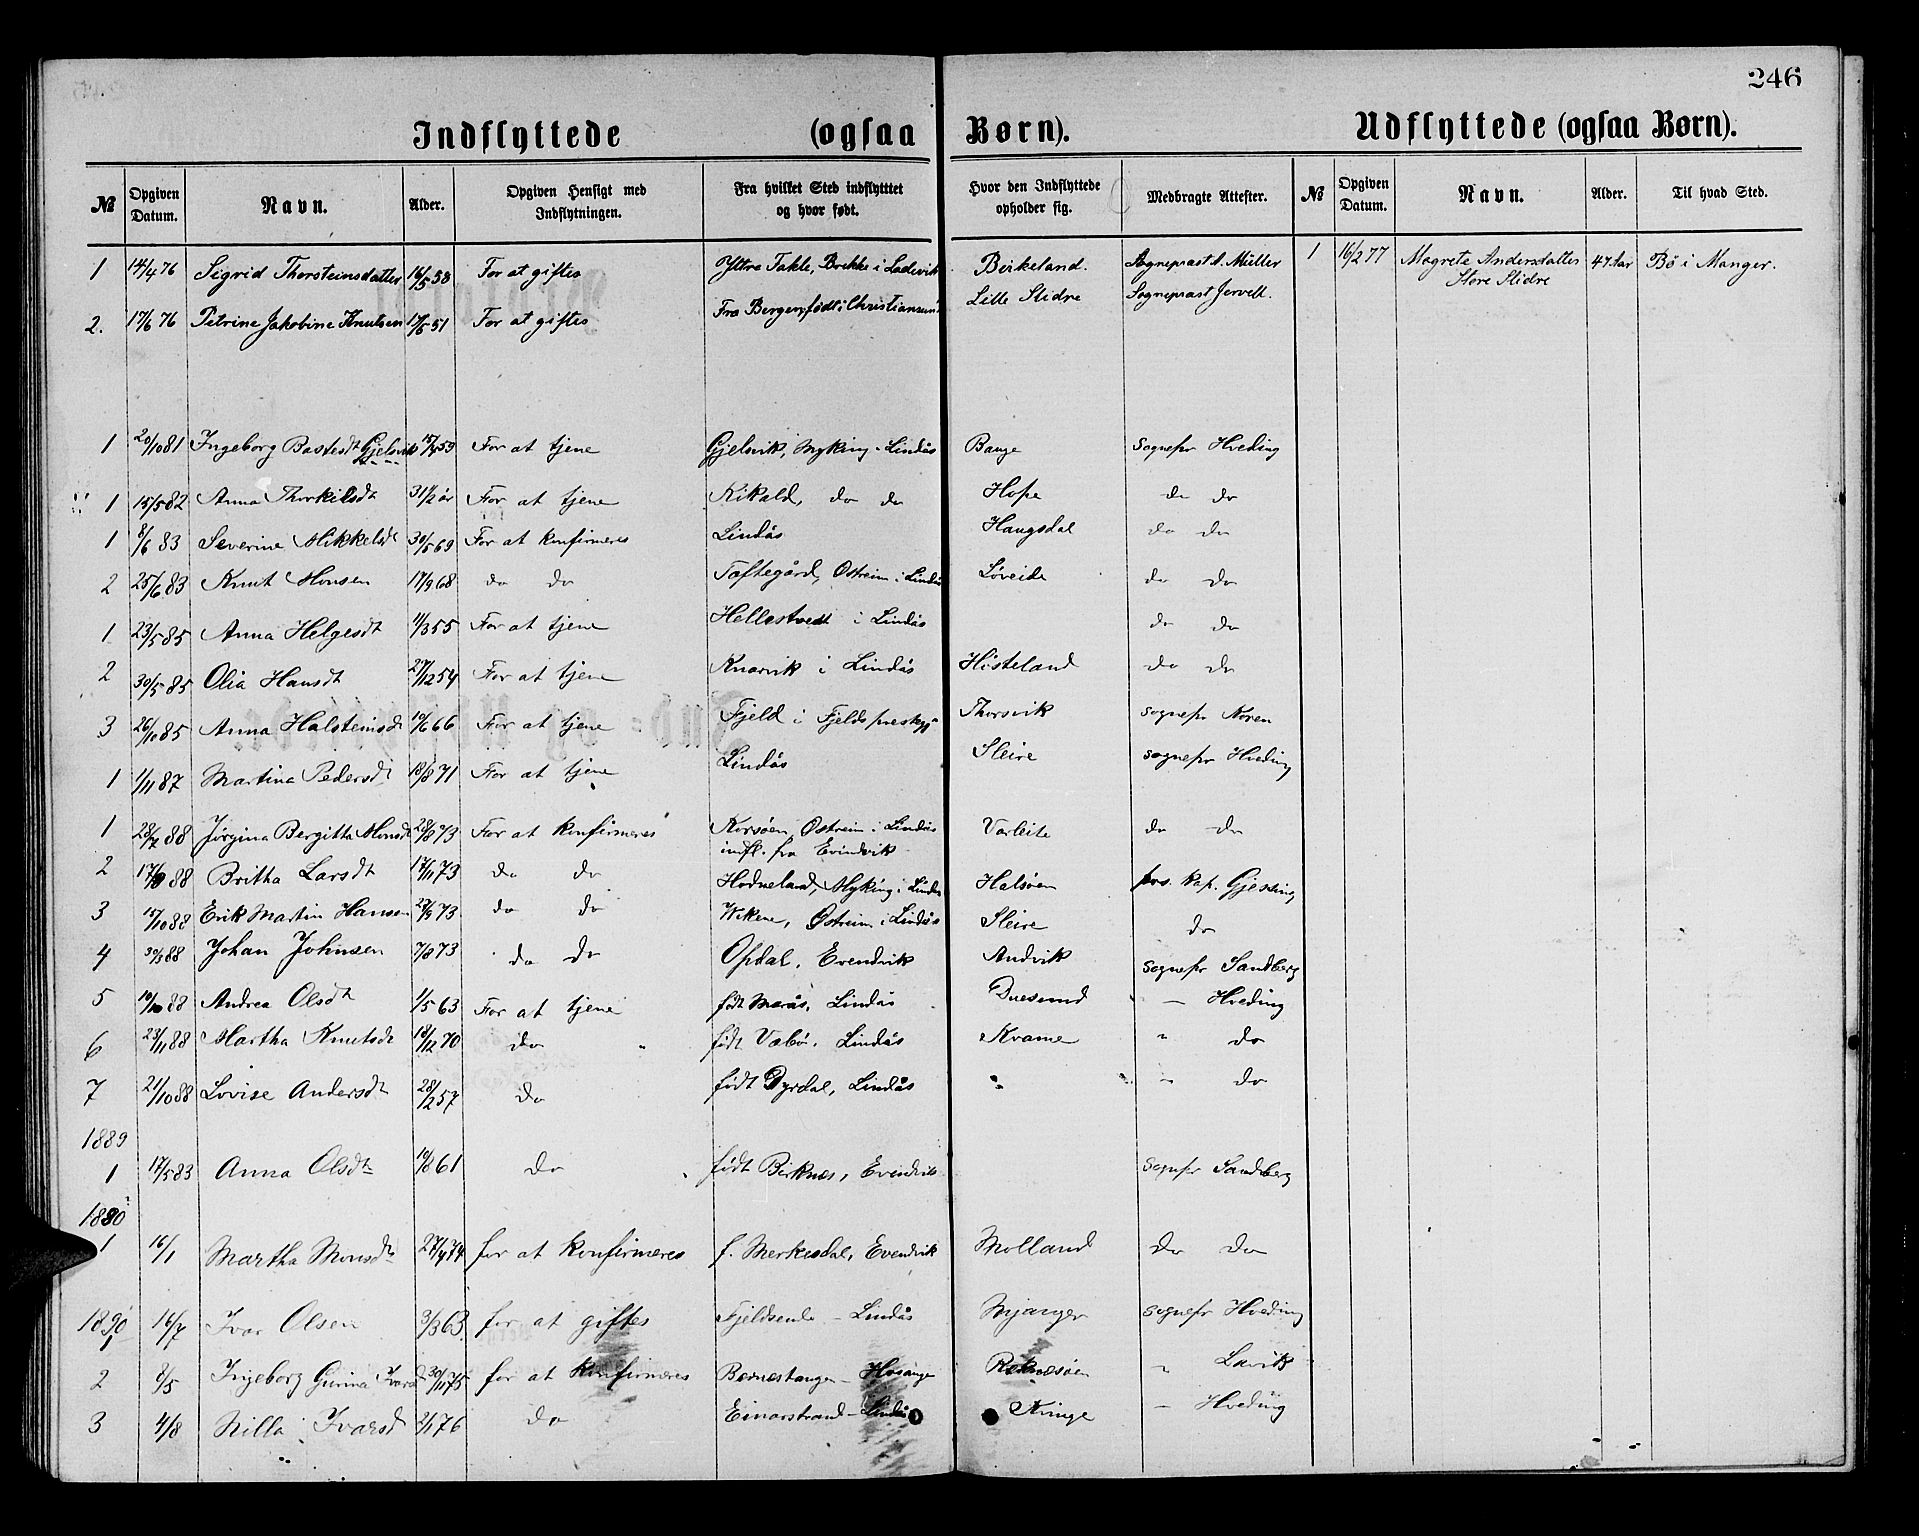 246
Indflyttede (ogsaa Børn). Udflyttede (ogsaa Børn).
№ Opgiven Datum. Navn. Alder. Opgiven Hensigt med Indflytningen. Fra hvilket Sted indflytttet og hvor født. Hvor den Indflyttede opholder sig. Medbragte Attester. № Opgiven Datum. Navn. Alder. Til hvad Sted.
1 14/4 76 Sigrid Thorsteinsdatter 16/5 58 For at giftes Yttre Takle, Brekke i Ladevik Birkeland. Sogneprast A. Müller 1 16/2 77 Magrete Andersdatter 47 Aar Bö i Manger.
Store Slidre
2. 17/6 76 Petrine Jakobine Knutsen 17/5 51 For at giftes Fra Bergen, født i Christiansund Lille Slidre Sogneprast Jervell.
1 20/10 81 Ingeborg Bastesdt Gjelsvik 15/4 59 For at tjene Gjelsvik, Myking i Lindås Bauge Sognepr Hveding
1 15/5 82 Anna Thorkilsdt 31 1/2 år For at tjene Kikald, do do Hope do do
1 8/6 83 Severine Mikkelsdt 30/5 69 For at konfirmeres Lindås Haugsdal do do
2 25/6 83 Knut Monsen 17/9 68 do do Toftegård, Ostreim i Lindås Løveide do do
1 23/5 85 Anna Helgesdt 11/3 55 For at tjene Hellestvedt i Lindås do do
2 30/5 85 Olia Hansdt 27/12 54 For at tjene Knarvik i Lindås Histeland do do
3 26/10 85 Anna Halsteinsdt 10/6 66 For at tjene Fjeld i Fjelds prestegj Thorsvik sognepr Koren
1 1/11 87 Martina Pedersdt 18/8 71 For at tjene Lindås Sleire sognepr Hveding
1 28/7 88 Jørgina Bergitta Monsdt 28/8 73 For at konfirmeres Korsøen, Ostreim i Lindås Varleite do do
infl. fra Evindvik
2 17/9 88 Britha Larsdt 17/11 73 do do Hodneland, Myking i Lindås Halsøen pers. kap. Gjessing
3 15/10 88 Erik Martin Hansen 27/9 73 do do Wikene, Ostreim i Lindås Sleire do
4 30/3 88 Johan Johnsen 7/8 73 do do Opdal, Evendvik Andvik sognepr Sandberg
5 10/10 88 Andrea Olsdt 1/5 63 For at tjene født Marås, Lindås Duesund — Hveding
6 23/11 88 Martha Knutsdt 18/12 70 do født Vabö, Lindås Kvame " do
7 21/10 88 Lovise Andersdt 28/2 57 do født Dyrdal, Lindås " — do
1889
1 17/5 83 Anna Olsdt 10/8 61 do født Birknes, Evendvik sognepr Sandberg
1890
1 16/1 Martha Monsdt 27/4 74 for at konfirmeres f. Merkesdal, Evendvik Molland do do
1890
1 16/7 Ivar Olsen 3/3 63 for at giftes Fjeldsende — Lindås Mjanger sognepr Hveding
2 8/5 Ingeborg Gurina Ivarsd 30/11 75 for at konfirmeres Bernestangen — Hosanger Reknesøen " Lavik
3 4/8 Nilla Ivarsd 2/1 76 do Einarstrand — Lindås Kvinge — Hveding